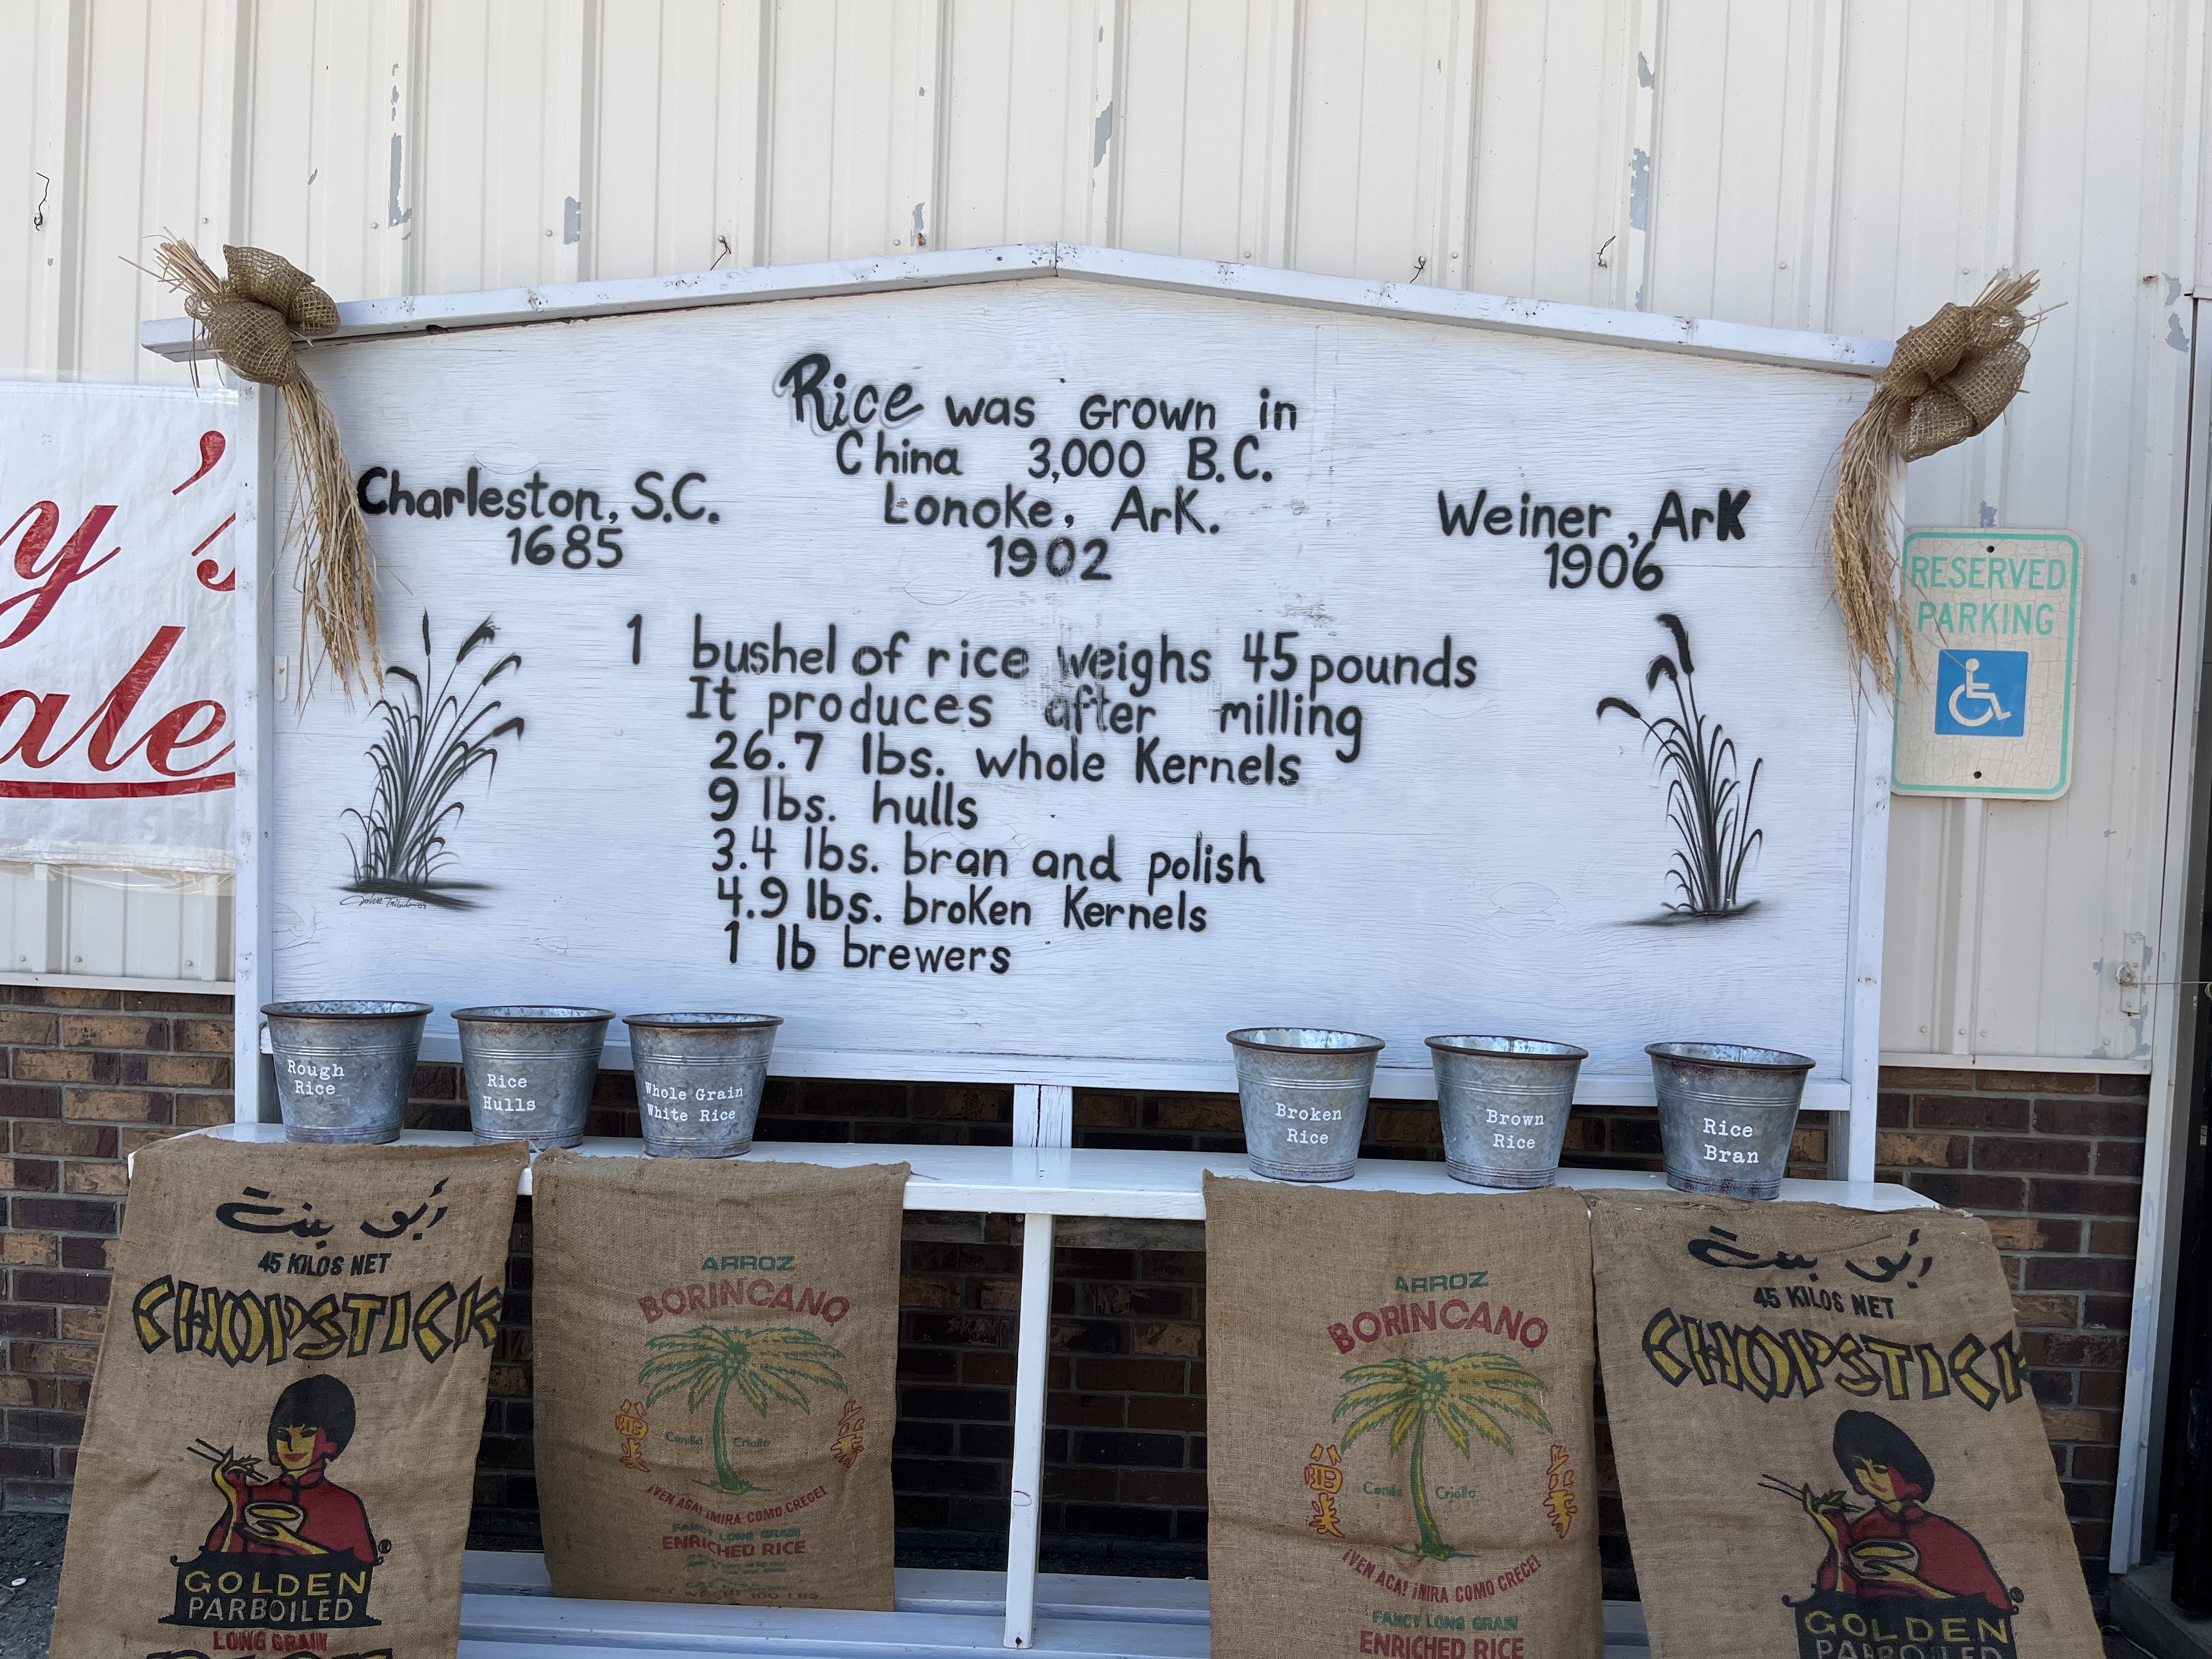 Rice was Grown in
China 3,000 B.C.
Charleston, S.C.
1685
Lonoke, Ark.
1902
Weiner, Ark
1906
1 bushel of rice weighs 45 pounds
It produces after milling
26.7 lbs. whole Kernels
9 lbs. hulls
3.4 lbs. bran and polish
4.9 lbs. broken Kernels
1 lb brewers
y's
ale
RESERVED
PARKING
Rough
Rice
Rice
Hulls
Whole Grain
White Rice
Broken
Rice
Brown
Rice
Rice
Bran
أبو بنت
45 KILOS NET
CHOPSTICK
®
GOLDEN
PARBOILED
LONG GRAIN
ARROZ
BORINCANO
Canilla Criollo
¡VEN ACA! ¡MIRA COMO CRECE!
FANCY LONG GRAIN
ENRICHED RICE
WEIGHT 100 LBS.
ARROZ
BORINCANO
Criollo
¡VEN ACA! ¡MIRA COMO CRECE!
FANCY LONG GRAIN
ENRICHED RICE
أبو بنت
45 KILOS NET
CHOPSTICK
®
GOLDEN
PARBOILED